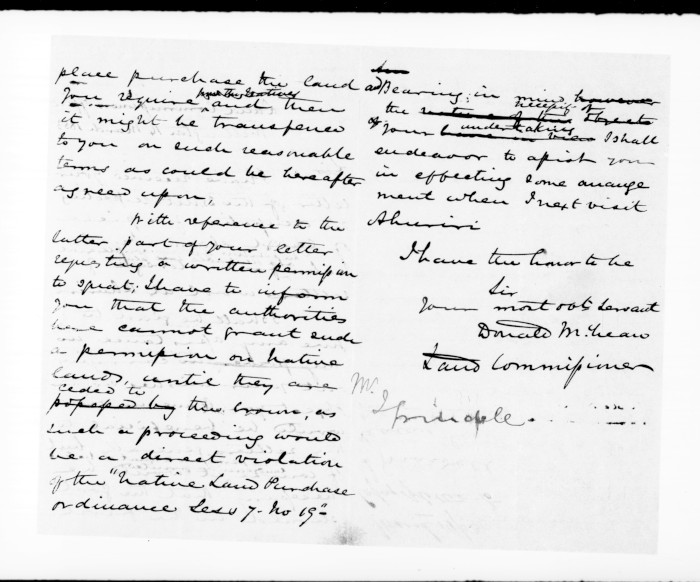 place purchase the land
from the Natives
you require and then
it might be transferred
to you on such reasonable
terms as could be hereafter
agreed upon
With reference to the
latter part of your letter
requesting a written permission
to squat; I have to inform
you that the authorities
here cannot grant such
a permission on Native
lands, until they are
ceded to
possessed by the crown, as
such a proceeding would
be a direct violation
of the "Native Land Purchase
ordinance Sess 7. No 19"
Bearing in mind however
the nature of the objects
of your undertaking I shall
endeavor to assist you
in effecting some arrange
ment when I next visit
Ahuriri
I have the honor to be
Sir
Your most obt. Servant
Donald McLean
Land Commissioner
Mr.
J Grindle